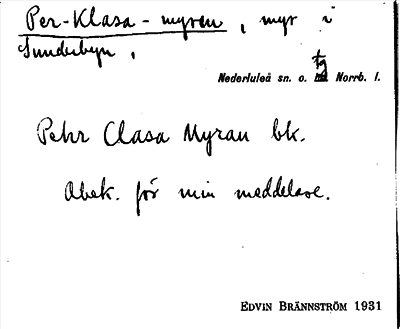 Per-Klasa-myren, myr i
Sunderbyn,
Nederluleå sn. o. tg Norrb. l.
Pehr Clasa Myran bk.
Obek. för min meddelare.
EDVIN BRÄNNSTRÖM 1931